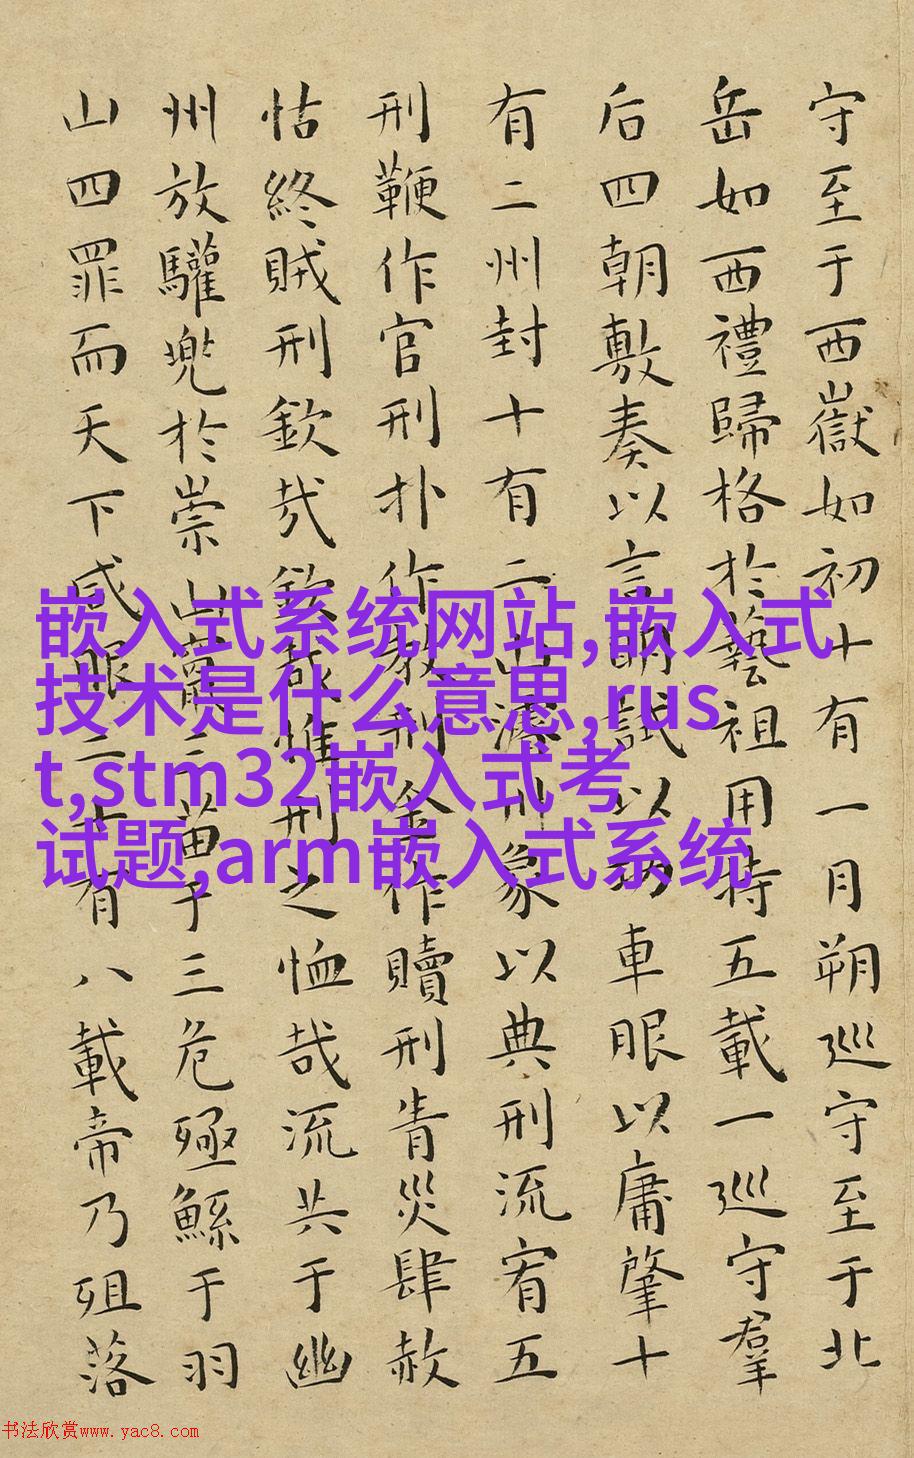 守至于西嶽如初十有一月朔巡守至于北
岳如西禮歸格於藝祖用特五載一巡守羣
后四朝敷奏以言明試以功車服以庸肇十
有二州封十有二山濬川象以典刑流宥五
刑鞭作官刑扑作教刑金作贖刑眚災肆赦
怙終賊刑欽哉欽哉惟刑之恤哉流共于幽
州放驩兜於崇山竄三苗于三危殛鯀于羽
山四罪而天下咸服二十有八載帝乃殂落
嵌入式系统网站,嵌入式
技术是什么意思,rus
t,stm32嵌入式考
试题,arm嵌入式系统
书法欣赏www.yac8.com